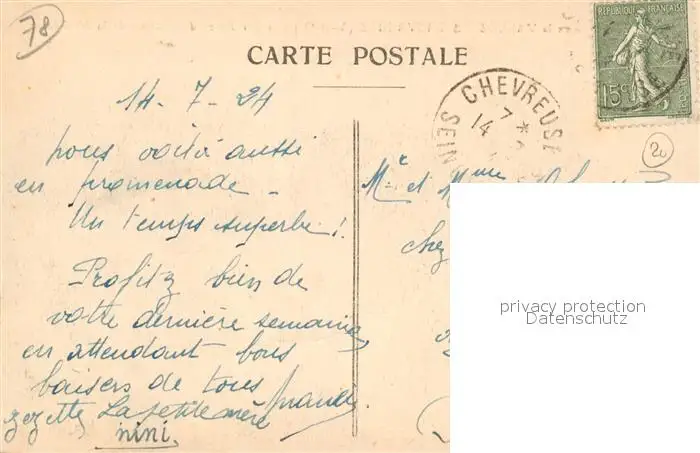 78
CARTE POSTALE
REPUBLIQUE FRANÇAISE
15c
CHEVREUSE
7 *
14
SEINE
20
14-7-24
nous voilà aussi
en promenade -
Un temps superbe !
Profitez bien de
votre dernière semaine,
en attendant bons
baisers de tous
zezette La petite mère
nini.
Mr et Mme
chez
privacy protection
Datenschutz